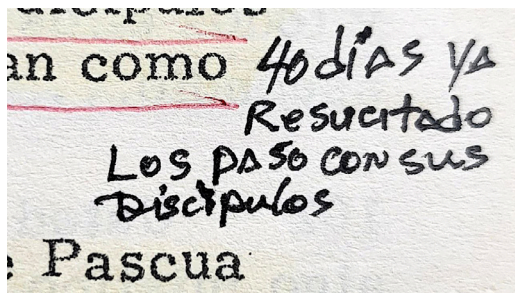 discípulos
an como 40 días ya
Resucitado
Los paso con sus
Discípulos
e Pascua